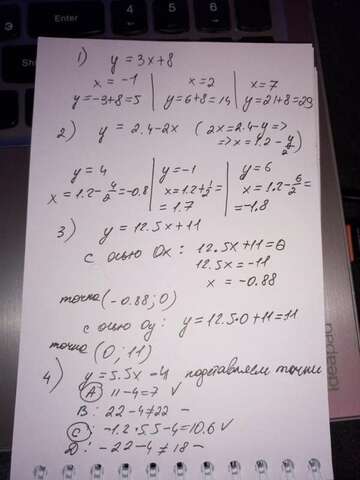 1) y = 3x+8
x = -1 | x = 2 | x = 7
y=-3+8=5 | y=6+8=14 | y=21+8=29
2) y = 2.4-2x (2x=2.4-y=>
=>x=1.2-y/2)
y=4 | y=-1 | y=6
x=1.2-4/2=-0.8 | x=1.2+1/2= | x=1.2-6/2=
=1.7 | =-1.8
3) y = 12.5x+11
с осью Ox: 12.5x+11=0
12.5x=-11
x = -0.88
точка (-0.88; 0)
с осью Oy: y=12.5·0+11=11
точка (0; 11)
4) y=5.5x-4 подставляем точки
A: 11-4=7 V
B: 22-4≠22 -
C: -1.2·5.5-4=10.6 V
D: -22-4≠18 -